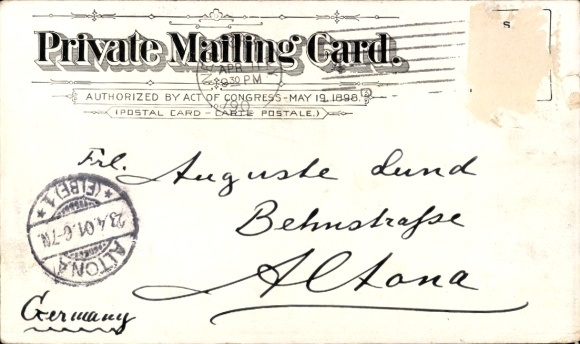 Private Mailing Card.
APR
930 PM
190
AUTHORIZED BY ACT OF CONGRESS-MAY 19, 1898.
(POSTAL CARD - CARTE POSTALE.)
S.
Frl. Auguste Lund
Behnstraße
Altona
Germany
ALTONA
23.4.01.6-7N.
* (ELBE) 1 *